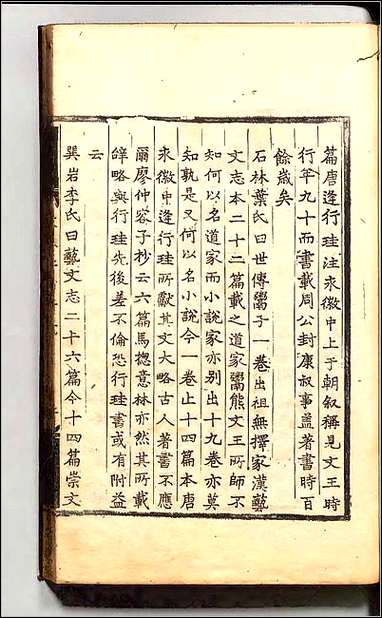 篇唐逄行珪注永徽中上于朝叙稱見文王時
行年九十而書載周公封康叔事蓋著書時百
餘歲矣
石林葉氏曰世傳鬻子一卷出祖無擇家漢藝
文志本二十二篇載之道家鬻熊文王所師不
知何以名道家而小說家亦別出十九卷亦莫
知孰是又何以名小說今一卷止十四篇本唐
永徽中逄行珪所獻其文大略古人著書不應
爾廖仲容子抄云六篇馬揔意林亦然其所載
辭略與行珪先後差不倫恐行珪書或有附益
云
巽岩李氏曰藝文志二十六篇今十四篇崇文